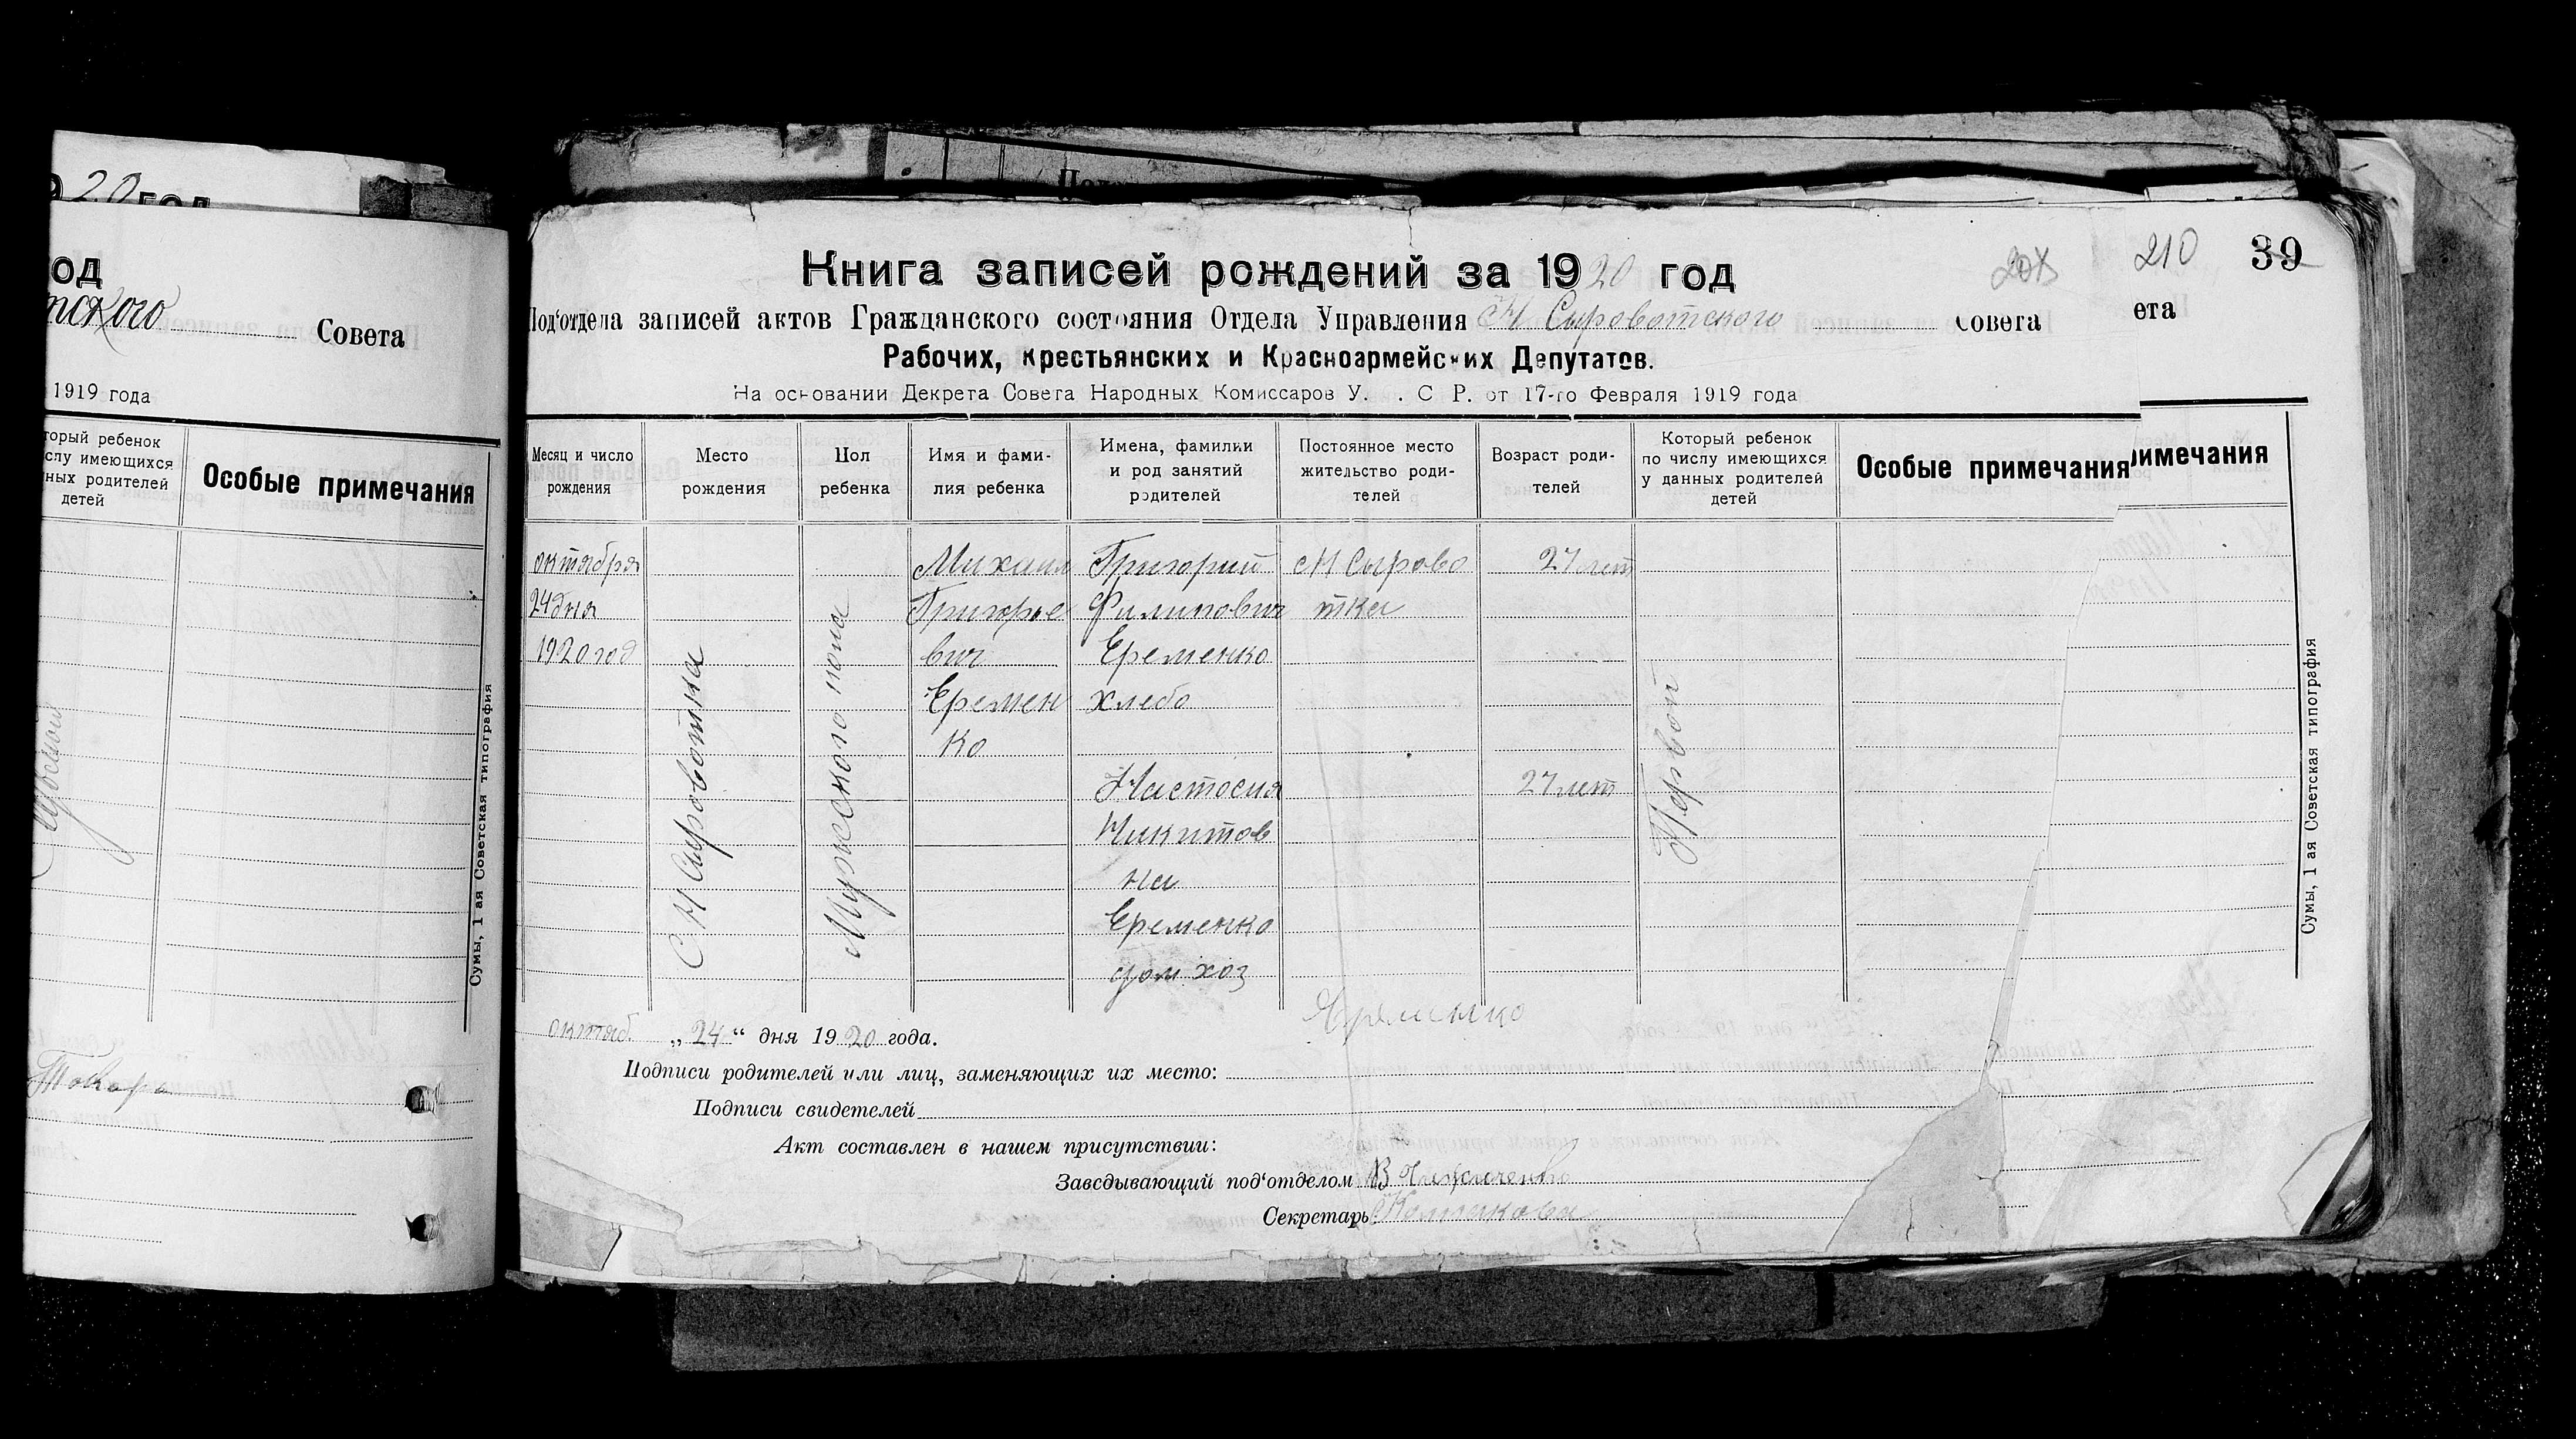 920 год
од
тского Совета
1919 года
торый ребенок
слу имеющихся
ных родителей
детей
Особые примечания
Токарь
Сумы, 1 ая Советская типография
210
39
Книга записей рождений за 1920 год
Под'отдела записей актов Гражданского состояния Отдела Управления Н Сыроватского Совета
ета
Рабочих, крестьянских и Красноармейских Депутатов.
На основании Декрета Совета Народных Комиссаров У. . С Р. от 17-го Февраля 1919 года
Месяц и число
рождения
Место
рождения
Пол
ребенка
Имя и фами-
лия ребенка
Имена, фамилии
и род занятий
родителей
Постоянное место
жительство роди-
телей
Возраст роди-
телей
Который ребенок
по числу имеющихся
у данных родителей
детей
Особые примечания
имечания
октября
24 дня
1920 год
С Н Сыроватка
Мужеского пола
Михаил
Григорье
вич
Еремен
ко
Григорий
Филипович
Еременко
хлебо
Настосия
Никитов
на
Еременко
дом хоз
с Н Сырова
тка
27 лет
27 лет
Первой
октяб. „24“ дня 1920 года.
Еременко
Подписи родителей или лиц, заменяющих их место:
Подписи свидетелей
Акт составлен в нашем присутствии:
Заведывающий под'отделом В
Секретарь
Сумы, 1 ая Советская типография